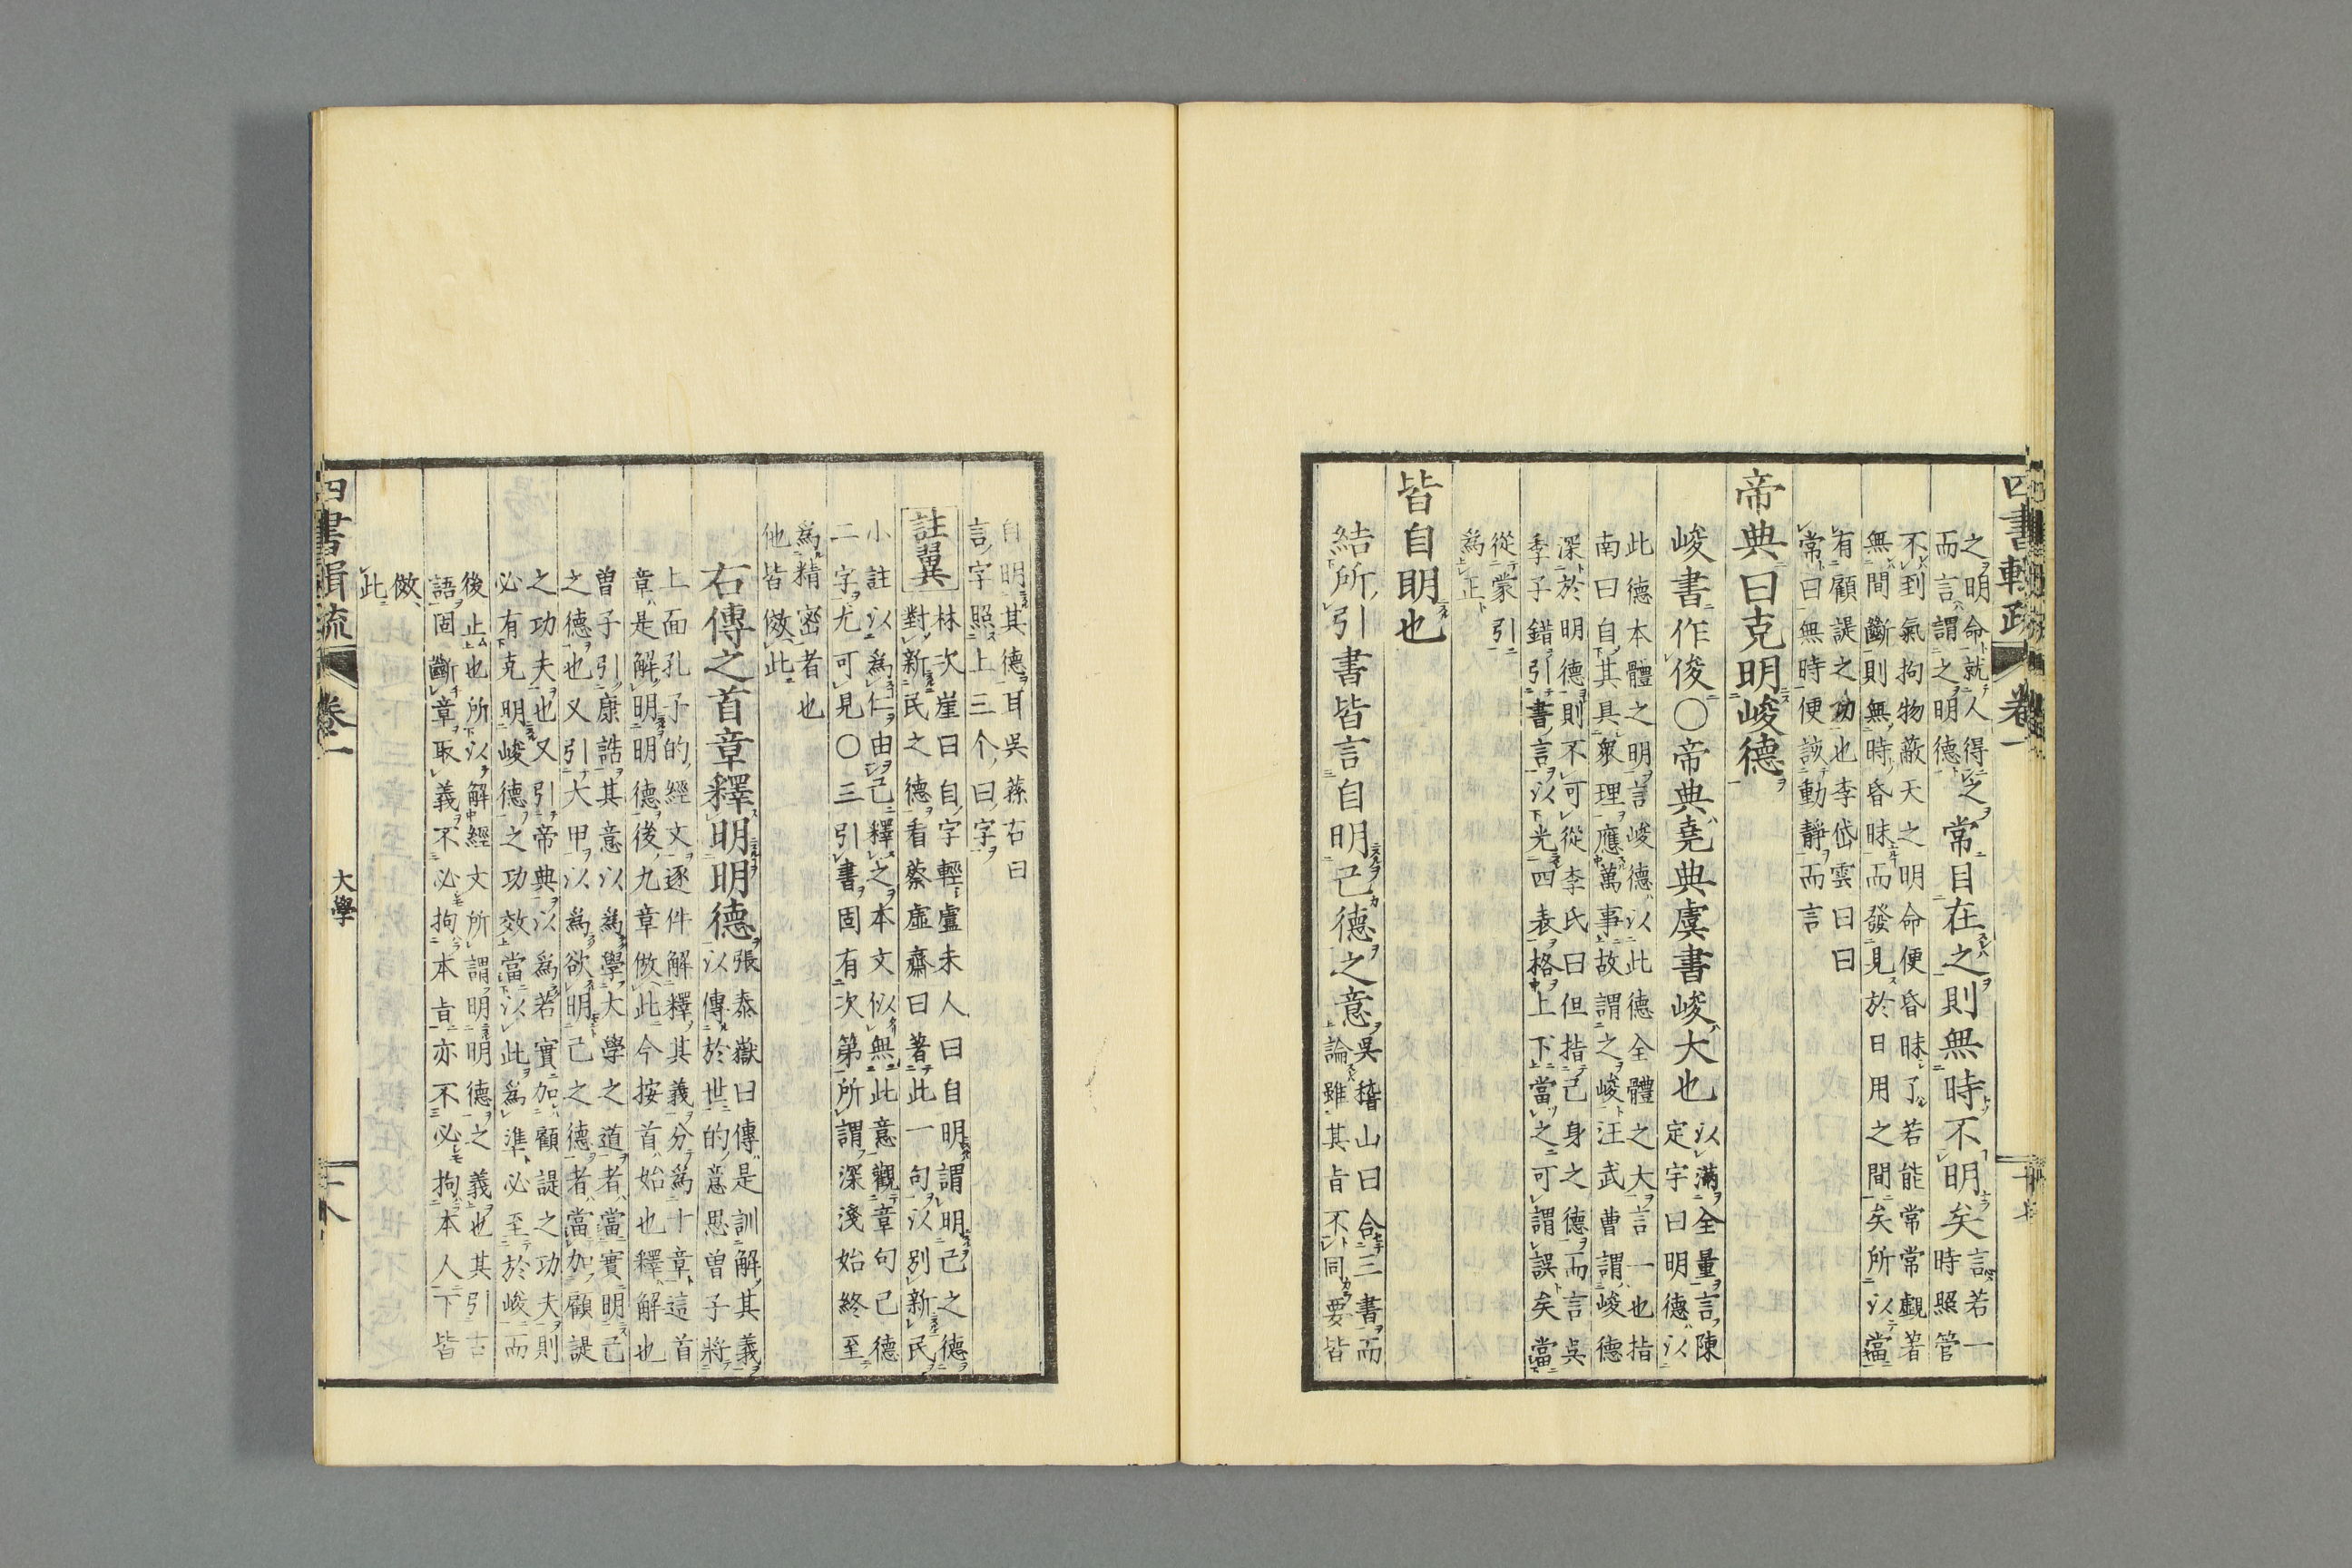 之明命就人得之常目在之則無時不明矣言若一
而言謂之明德時照管
不到氣拘物蔽天之明命便昏昧了若能常常覷著
無間斷則無時昏昧而發見於日用之間矣所以當
有顧諟之功也李岱雲曰曰
常曰無時便該動靜而言
帝典曰克明峻德
峻書作俊〇帝典堯典虞書峻大也以滿全量言陳
定宇曰明德以
此德本體之明言峻德以此德全體之大言一也指
南曰自其具衆理應萬事故謂之峻汪武曹謂峻德
深於明德則不可從李氏曰但指己身之德而言吳
季子錯引書言以光四表格上下當之可謂誤矣當
從蒙引
爲正
皆自明也
結所引書皆言自明己德之意吳稽山曰合三書而
論雖其旨不同要皆
自明其德耳吳蓀右曰
言字照上三个曰字
註翼 林次崖曰自字輕盧未人曰自明謂明己之德
對新民之德看蔡虛齋曰著此一句以別新民
小註以爲仁由己釋之本文似無此意觀章句己德
二字尤可見〇三引書固有次第所謂深淺始終至
爲精密者也
他皆倣此
右傳之首章釋明明德張泰嶽曰傳是訓解其義
以傳於世的意思曽子將
上面孔子的經文逐件解釋其義分爲十章這首
章是解明明德後九章倣此今按首始也釋解也
曽子引康誥其意以爲學大學之道者當實明己
之德也又引大甲以爲欲明己之德者當加顧諟
之功夫也又引帝典以爲若實加顧諟之功夫則
必有克明峻德之功效當以此爲準必至於峻而
後止也所以解經文所謂明明德之義也其引古
語固斷章取義不必拘本旨亦不必拘本人下皆
倣
此
四書輯疏
卷一
大學